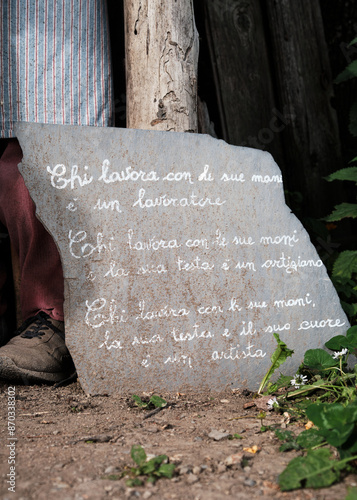 Chi lavora con le sue mani
è un lavoratore
Chi lavora con le sue mani
e la sua testa è un artigiano
Chi lavora con le sue mani,
la sua testa e il suo cuore
è un artista
Adobe Stock | #870338302